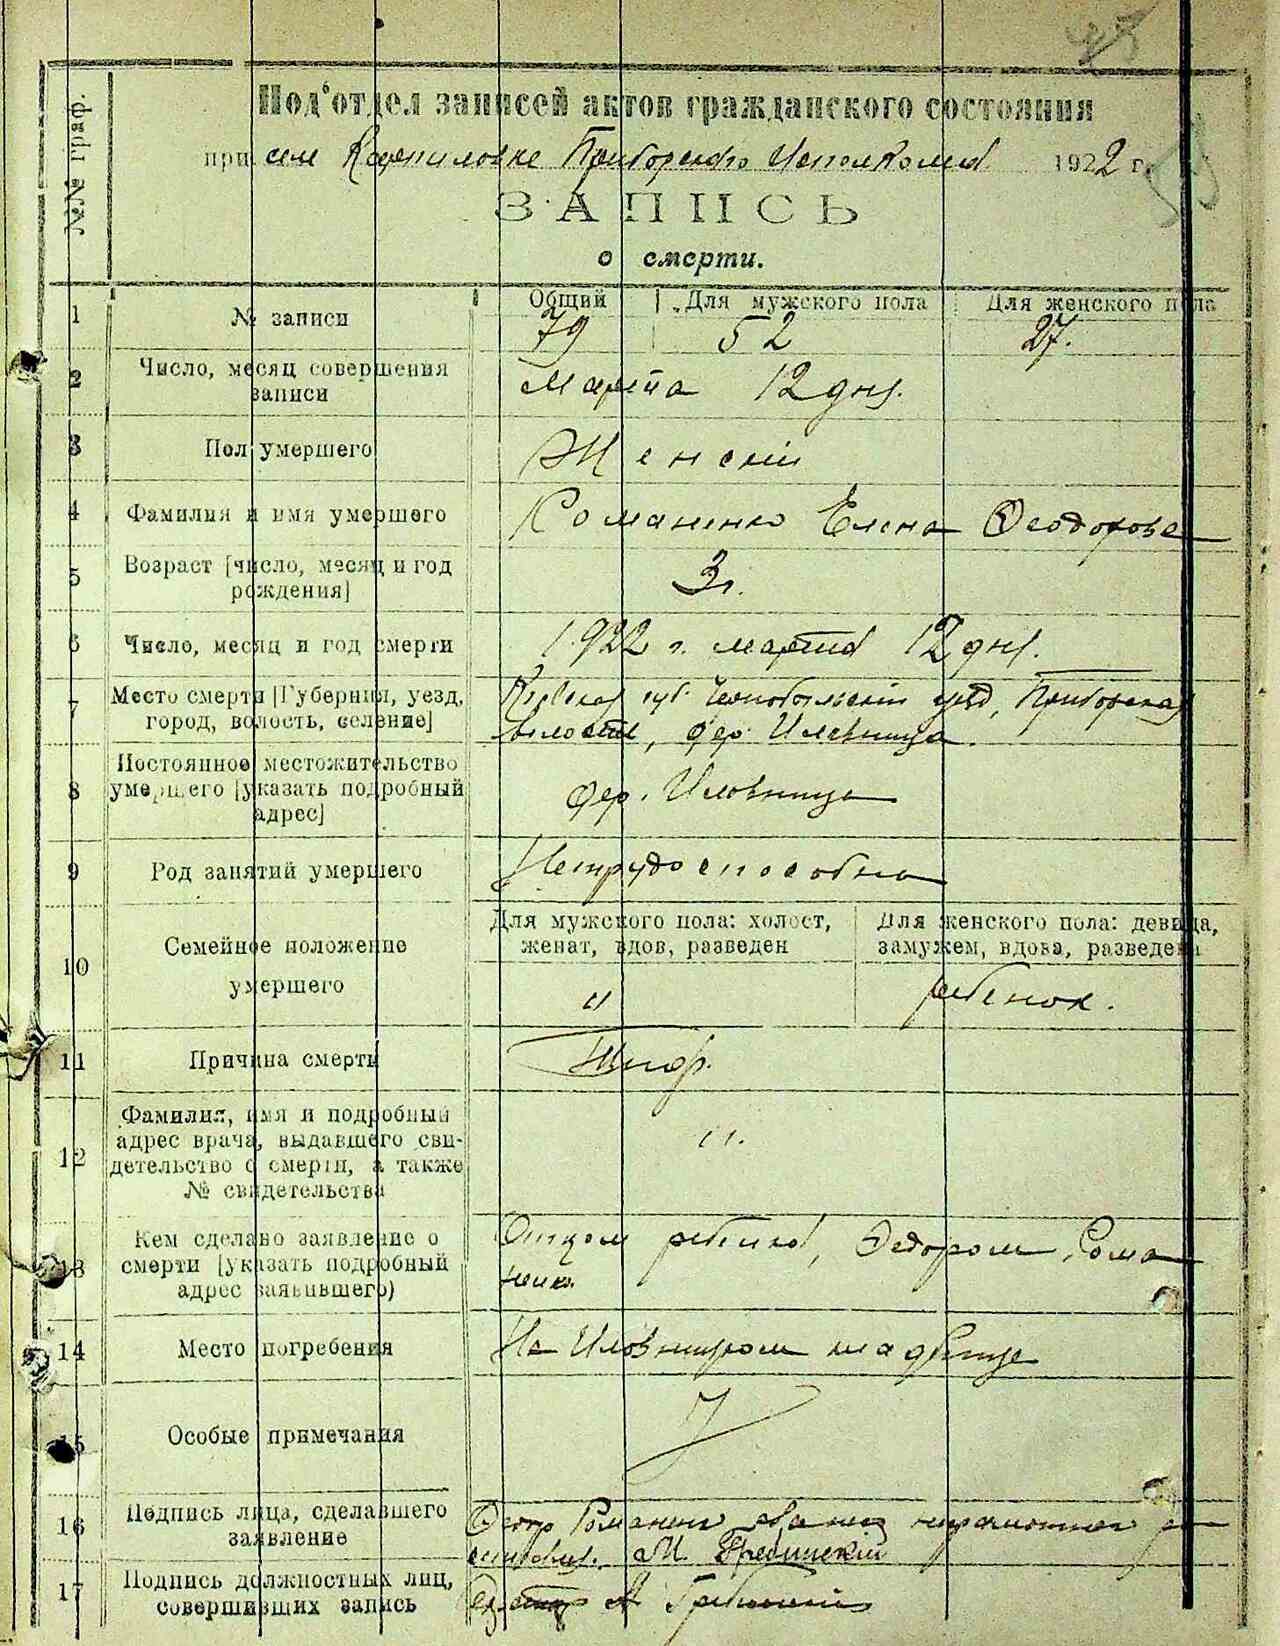 №№ граф.
Под'отдел записей актов гражданского состояния
при селе Карпиловке Приборского Исполкома 1922 г.
ЗАПИСЬ
о смерти.
Общий Для мужского пола Для женского пола
1 № записи 79 52 27.
2 Число, месяц совершения
записи
Марта 12 дня.
3 Пол умершего Женскій
4 Фамилия и имя умершего Романенко Елена Феодоровна
5 Возраст [число, месяц и год
рождения]
3 г.
6 Число, месяц и год смерти 1922 г. марта 12 дня.
7 Место смерти [Губерния, уезд,
город, волость, селение]
Киевская губ. Чернобыльскій уезд, Приборская
волость, дер. Иловница.
8 Постоянное местожительство
умершего [указать подробный
адрес]
дер. Иловница
9 Род занятий умершего Нетрудоспособна
10 Семейное положение
умершего
Для мужского пола: холост,
женат, вдов, разведен
Для женского пола: девица,
замужем, вдова, разведена
" ребенок.
11 Причина смерти Тиф.
12 Фамилия, имя и подробный
адрес врача, выдавшего сви-
детельство о смерти, а также
№ свидетельства
".
13 Кем сделано заявление о
смерти [указать подробный
адрес заявившего)
Отцом ребенка, Федором Рома
ненко
14 Место погребения На Иловницком кладбище
15 Особые примечания
16 Подпись лица, сделавшего
заявление
Романенко неграмотного
Гребинскій
17 Подпись должностных лиц,
совершивших запись
А Гребинскій